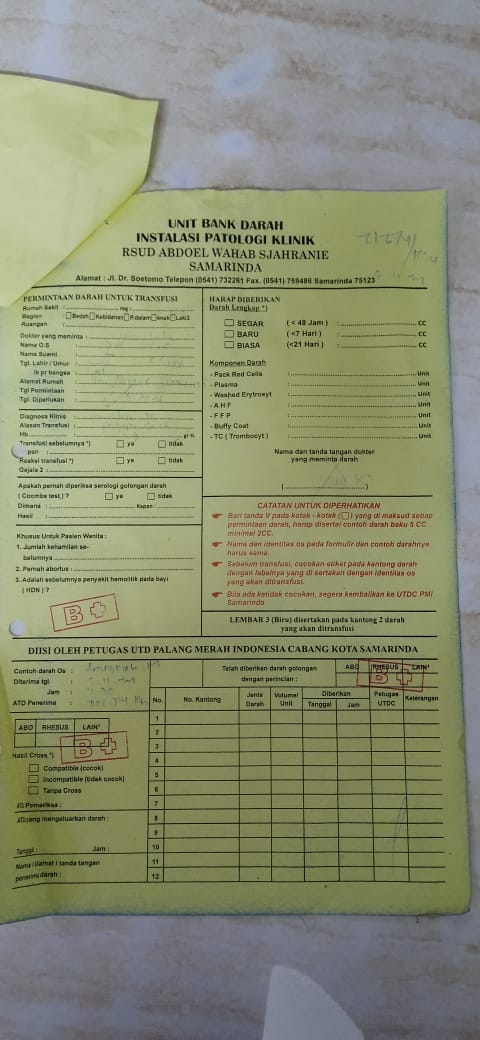 UNIT BANK DARAH
INSTALASI PATOLOGI KLINIK
RSUD ABDOEL WAHAB SJAHRANIE
SAMARINDA
Alamat : Jl. Dr. Soetomo Telepon (0541) 732261 Fax. (0541) 759486 Samarinda 75123
PERMINTAAN DARAH UNTUK TRANSFUSI
Rumah Sakit : reg :
Bagian : Bedah Kebidanan P.dalam anak Laki2
Ruangan :
Dokter yang meminta :
Nama O.S :
Nama Suami :
Tgl. Lahir / Umur :
ik pr bangsa :
Alamat Rumah :
Tgl Permintaan :
Tgl. Diperlukan :
Diagnosa Klinis :
Alasan Transfusi :
Hb : gr %
Transfusi sebelumnya *) ya tidak
pan :
Reaksi transfusi *) ya tidak
Gejala 2 :
Apakah pernah diperiksa serologi golongan darah
( Coombs test,) ? ya tidak
Dimana : Kapan :
Hasil :
Khusus Untuk Pasien Wanita :
1. Jumlah kehamilan se-
belumnya
2. Pernah abortus :
3. Adalah sebelumnya penyakit hemolitik pada bayi
( HDN ) ?
B +
HARAP DIBERIKAN
Darah Lengkap *)
SEGAR ( < 48 Jam ) : CC
BARU ( <7 Hari ) : CC
BIASA (<21 Hari ) : CC
Komponen Darah
- Pack Red Celis : Unit
- Plasma : Unit
- Washed Erytrosyt : Unit
- A H F : Unit
- F F P : Unit
- Buffy Coat : Unit
- TC ( Trombocyt ) : Unit
Nama dan tanda tangan dokter
yang meminta darah
( )
CATATAN UNTUK DIPERHATIKAN
Beri tanda V pada kotak - kotak ( ) yang di maksud setiap
permintaan darah, harap disertai contoh darah beku 5 CC
minimal 2CC.
Nama dan identitas os pada formulir dan contoh darahnya
harus sama.
Sebelum transfusi, cocokan etiket pada kantong darah
dengan labelnya yang di sertakan dengan identitas os
yang akan ditransfusi.
Bila ada ketidak cocokan, segera kembalikan ke UTDC PMI
Samarinda
LEMBAR 3 (Biru) disertakan pada kantong 2 darah
yang akan ditransfusi
DIISI OLEH PETUGAS UTD PALANG MERAH INDONESIA CABANG KOTA SAMARINDA
Contoh darah Os :
Diterima tgl. :
Jam :
ATD Penerima :
Telah diberikan darah golongan
dengan perincian :
ABO RHESUS LAIN²
B +
No. No. Kantong Jenis Darah Volume/ Unit Diberikan Tanggal Jam Petugas UTDC Keterangan
1
2
3
4
5
6
7
8
9
10
11
12
ABO RHESUS LAIN²
B +
Hasil Cross *)
Compatible (cocok)
Incompatible (tidak cocok)
Tanpa Cross
ATD Pemeriksa :
ATD yang mengeluarkan darah :
Tanggal : Jam :
Nama / alamat / tanda tangan
penerima darah :